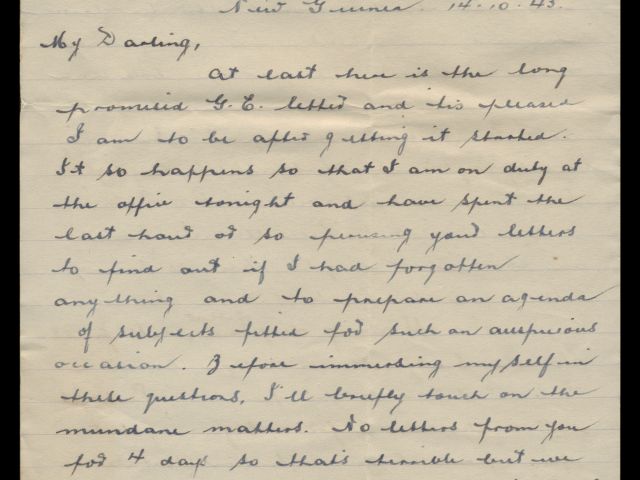 New Guinea 14.10.43.
My Darling,
At last here is the long
promised G.E. letter and tis pleased
I am to be after getting it started.
It so happens so that I am on duty at
the office tonight and have spent the
last hour or so perusing your letters
to find out if I had forgotten
anything and to prepare an agenda
of subjects fitted for such an auspicious
occasion. Before immersing myself in
these questions, I'll briefly touch on the
mundane matters. No letters from you
for 4 days so that's terrible but we